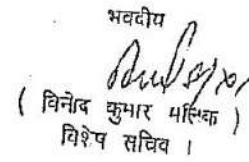 भवदीय
( विनोद कुमार मलिक )
विशेष सचिव ।